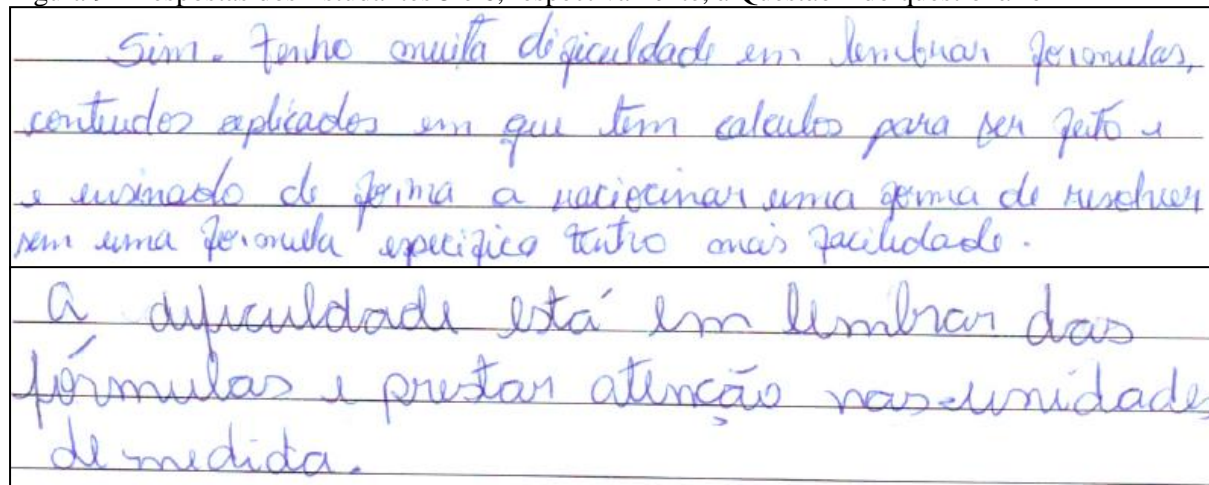 Sim. Tenho muita dificuldade em lembrar formulas,
conteudos aplicados em que tem calculos para ser feito e
e ensinado de forma a raciocinar uma forma de resolver
sem uma formula especifica tenho mais facilidade.
A dificuldade está em lembrar das
fórmulas e prestar atenção nas unidades
de medida.